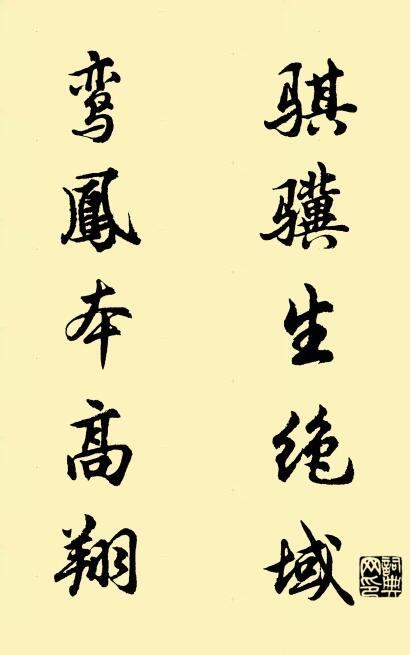 骐骥生绝域
鸾鳳本高翔
詞典网印